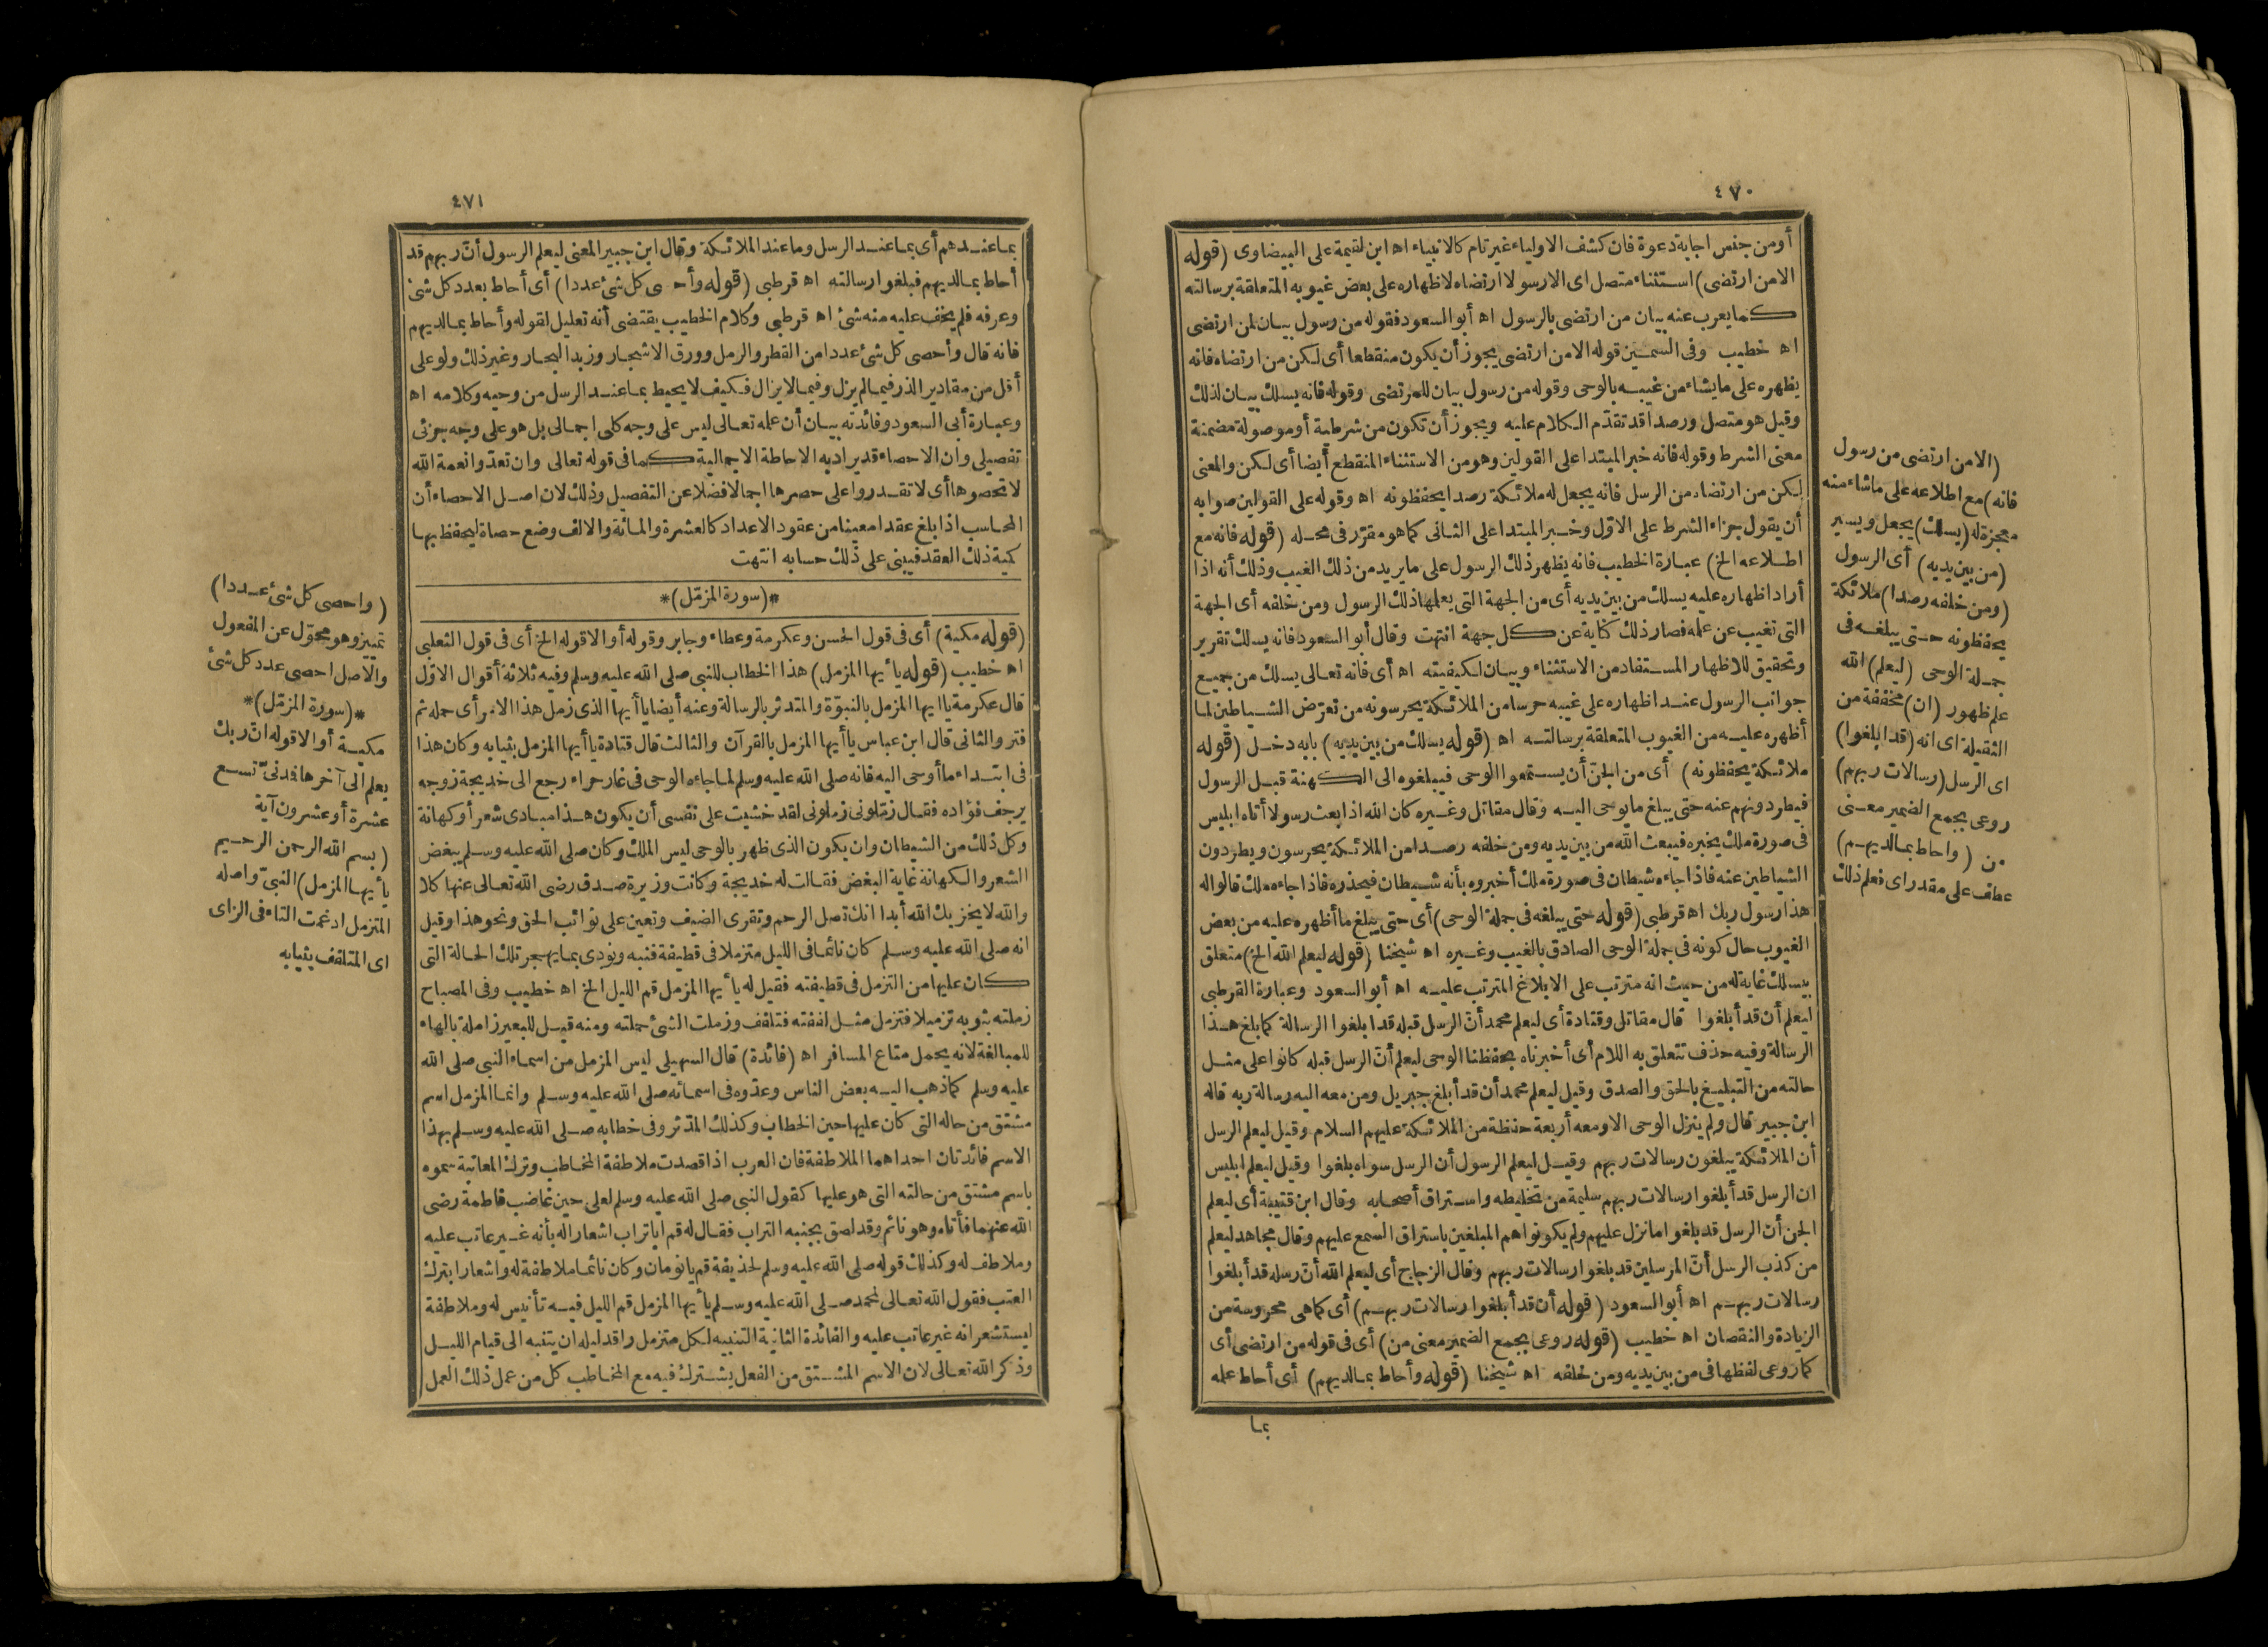 ٤٧٠
أومن جنس اجابة دعوة فان كشف الاولياء غيرتام كالانبياء اه ابن لقيمة على البيضاوى (قوله
الامن ارتضى) استثناء متصل اى الارسولا ارتضاه لاظهاره على بعض غيوبه المتعلقة برسالته
كما يعرب عنه بيان من ارتضى بالرسول اه أبوالسعود فقوله من رسول بيان لمن ارتضى
اه خطيب وفى السمين قوله الامن ارتضى يجوز أن يكون منقطعا أى لكن من ارتضاه فانه
يظهره على مايشاء من غيبه بالوحى وقوله من رسول بيان للمرتضى وقوله فانه يسلك بيان لذلك
وقيل هو متصل ورصدا قد تقدّم الكلام عليه ويجوز أن تكون من شرطية أوموصولة مضمنة
معنى الشرط وقوله فانه خبر المبتدا على القولين وهو من الاستثناء المنقطع أيضا أى لكن والمعنى
لكن من ارتضاه من الرسل فانه يجعل له ملائكة رصدا يحفظونه اه وقوله على القولين صوابه
أن يقول جزاء الشرط على الاوّل وخبر المبتدا على الثانى كما هو مقرّر فى محله (قوله فانه مع
اطلاعه الخ) عبارة الخطيب فانه يظهر ذلك الرسول على مايريد من ذلك الغيب وذلك أنه اذا
أراد اظهاره عليه يسلك من بين يديه أى من الجهة التى يعلمها ذلك الرسول ومن خلفه أى الجهة
التى تغيب عن علمه فصار ذلك كناية عن كل جهة انتهت وقال أبوالسعود فانه يسلك تقرير
وتحقيق للاظهار المستفاد من الاستثناء وبيان لكيفيته اه أى فانه تعالى يسلك من جميع
جوانب الرسول عند اظهاره على غيبه حرسا من الملائكة يحرسونه من تعرّض الشياطين لما
أظهره عليه من الغيوب المتعلقة برسالته اه (قوله يسلك من بين يديه) بابه دخل (قوله
ملائكة يحفظونه) أى من الجنّ أن يستمعوا الوحى فيبلغوه الى الكهنة قبل الرسول
فيطردونهم عنه حتى يبلغ مايوحى اليه وقال مقاتل وغيره كان الله اذا بعث رسولا أتاه ابليس
فى صورة ملك يخبره فيبعث الله من بين يديه ومن خلفه رصدا من الملائكة يحرسون ويطردون
الشياطين عنه فاذا جاءه شيطان فى صورة ملك أخبروه بأنه شيطان فيحذره فاذا جاءه ملك قالوا له
هذا رسول ربك اه قرطبى (قوله حتى يبلغه فى جملة الوحى) أى حتى يبلغ ما أظهره عليه من بعض
الغيوب حال كونه فى جملة الوحى الصادق بالغيب وغيره اه شيخنا (قوله ليعلم الله الخ) متعلق
بيسلك غاية له من حيث انه مترتب على الابلاغ المترتب عليه اه أبوالسعود وعبارة القرطبى
ليعلم أن قد أبلغوا قال مقاتل وقتادة أى ليعلم محمد أنّ الرسل قبله قد ابلغوا الرسالة كما بلغ هذا
الرسالة وفيه حذف تتعلق به اللام أى أخبرناه بحفظنا الوحى ليعلم أنّ الرسل قبله كانوا على مثل
حالته من التبليغ بالحق والصدق وقيل ليعلم محمد أن قد أبلغ جبريل ومن معه اليه رسالة ربه قاله
ابن جبير قال ولم ينزل الوحى الاومعه أربعة حفظة من الملائكة عليهم السلام وقيل ليعلم الرسل
أن الملائكة يبلغون رسالات ربهم وقيل ليعلم الرسول أن الرسل سواه بلغوا وقيل ليعلم ابليس
ان الرسل قد أبلغوا رسالات ربهم سليمة من تخليطه واستراق أصحابه وقال ابن قتيبة أى ليعلم
الجن أن الرسل قد بلغوا مانزل عليهم ولم يكونوا هم المبلغين باستراق السمع عليهم وقال مجاهد ليعلم
من كذب الرسل أنّ المرسلين قد بلغوا رسالات ربهم وقال الزجاج أى ليعلم الله أنّ رسله قد أبلغوا
رسالات ربهم اه أبوالسعود (قوله أن قد أبلغوا رسالات ربهم) أى كما هى محروسة من
الزيادة والنقصان اه خطيب (قوله روعى بجمع الضمير معنى من) أى فى قوله من ارتضى أى
كما روعى لفظها فى من بين يديه ومن خلفه اه شيخنا (قوله وأحاط بمالديهم) أى أحاط علمه
بما
(الامن ارتضى من رسول
فانه) مع اطلاعه على ماشاء منه
معجزة له (يسلك) يجعل ويسير
(من بين يديه) أى الرسول
(ومن خلفه رصدا) ملائكة
يحفظونه حتى يبلغه فى
جملة الوحى (ليعلم) الله
علم ظهور (ان) مخففة من
الثقيلة اى انه (قد ابلغوا)
اى الرسل (رسالات ربهم)
روعى بجمع الضمير معنى
من (واحاط بمالديهم)
عطف على مقدر اى فعلم ذلك
٤٧١
بماعندهم أى بماعند الرسل وماعند الملائكة وقال ابن جبير المعنى ليعلم الرسول أنّ ربهم قد
أحاط بمالديهم فبلغوا رسالته اه قرطبى (قوله وأحصى كل شئ عددا) أى أحاط بعدد كل شئ
وعرفه فلم يخف عليه منه شئ اه قرطبى وكلام الخطيب يقتضى أنه تعليل لقوله وأحاط بمالديهم
فانه قال وأحصى كل شئ عددا من القطر والرمل وورق الاشجار وزبد البحار وغير ذلك ولو على
أقل من مقادير الذر فيما لم يزل وفيما لايزال فكيف لايحيط بماعند الرسل من وحيه وكلامه اه
وعبارة أبى السعود وفائدته بيان أن علمه تعالى ليس على وجه كلى اجمالى بل هو على وجه جزئى
تفصيلى وان الاحصاء قد يراد به الاحاطة الاجمالية كما فى قوله تعالى وان تعدّوا نعمة الله
لاتحصوها أى لاتقدروا على حصرها اجمالا فضلا عن التفصيل وذلك لان اصل الاحصاء أن
المحاسب اذا بلغ عقدا معينا من عقود الاعداد كالعشرة والمائة والالف وضع حصاة ليحفظ بها
كمية ذلك العقد فيبنى على ذلك حسابه انتهت
*(سورة المزمّل)*
(قوله مكية) أى فى قول الحسن وعكرمة وعطاء وجابر وقوله أو الاقوله الخ أى فى قول الثعلبى
اه خطيب (قوله يأيها المزمل) هذا الخطاب للنبى صلى الله عليه وسلم وفيه ثلاثة أقوال الاوّل
قال عكرمة يا أيها المزمل بالنبوّة والمتدثر بالرسالة وعنه أيضا يا أيها الذى زمل هذا الامر أى حمله ثم
فتر والثانى قال ابن عباس يا أيها المزمل بالقرآن والثالث قال قتادة يا أيها المزمل بثيابه وكان هذا
فى ابتداء ما أوحى اليه فانه صلى الله عليه وسلم لما جاءه الوحى فى غار حراء رجع الى خديجة زوجه
يرجف فؤاده فقال زملونى زملونى لقد خشيت على نفسى أن يكون هذا مبادى شعر أوكهانة
وكل ذلك من الشيطان وان يكون الذى ظهر بالوحى ليس الملك وكان صلى الله عليه وسلم يبغض
الشعر والكهانة غاية البغض فقالت له خديجة وكانت وزيرة صدق رضى الله تعالى عنها كلا
والله لايخزيك الله أبدا انك تصل الرحم وتقرى الضيف وتعين على نوائب الحق ونحو هذا وقيل
انه صلى الله عليه وسلم كان نائما فى الليل متزملا فى قطيفة فنبه ونودى بما يهجر تلك الحالة التى
كان عليها من التزمل فى قطيفته فقيل له يأيها المزمل قم الليل الخ اه خطيب وفى المصباح
زملته بثوبه تزميلا فتزمل مثل لففته فتلفف وزملت الشئ حملته ومنه قيل للبعير زاملة بالهاء
للمبالغة لانه يحمل متاع المسافر اه (فائدة) قال السهيلى ليس المزمل من اسماء النبى صلى الله
عليه وسلم كما ذهب اليه بعض الناس وعدّوه فى اسمائه صلى الله عليه وسلم وانما المزمل اسم
مشتق من حاله التى كان عليها حين الخطاب وكذلك المدّثر وفى خطابه صلى الله عليه وسلم بهذا
الاسم فائدتان احداهما الملاطفة فان العرب اذا قصدت ملاطفة المخاطب وترك المعاتبة سموه
باسم مشتق من حالته التى هو عليها كقول النبى صلى الله عليه وسلم لعلى حين غاضب فاطمة رضى
الله عنهما فأتاه وهو نائم وقد لصق بجنبه التراب فقال له قم اباتراب اشعارا له بأنه غير عاتب عليه
وملاطف له وكذلك قوله صلى الله عليه وسلم لحذيفة قم يانومان وكان نائما ملاطفة له واشعارا بترك
العتب فقول الله تعالى لمحمد صلى الله عليه وسلم يأيها المزمل قم الليل فيه تأنيس له وملاطفة
ليستشعر انه غير عاتب عليه والفائدة الثانية التنبيه لكل متزمل راقد ليله ان يتنبه الى قيام الليل
وذكر الله تعالى لان الاسم المشتق من الفعل يشترك فيه مع المخاطب كل من عمل ذلك العمل
(واحصى كل شئ عددا)
تمييز وهو محوّل عن المفعول
والاصل احصى عدد كل شئ
*(سورة المزمّل)*
مكية أوالاقوله انّ ربك
يعلم الى آخرها فدنىّ تسع
عشرة أوعشرون آية
(بسم الله الرحمن الرحيم
يأيها المزمل) النبىّ واصله
المتزمل ادغمت التاء فى الزاى
اى المتلفف بثيابه